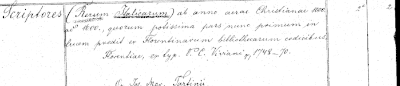 Scriptores (Rerum Italicarum) ab anno aerae Christianae 1000.
ad 1600. quorum potissima pars nunc primum in
lucem prodit ex Florentinarum bibliothecarum codicibus.
Florentiae, ex typ. P. C. Viviani, 1748-70.